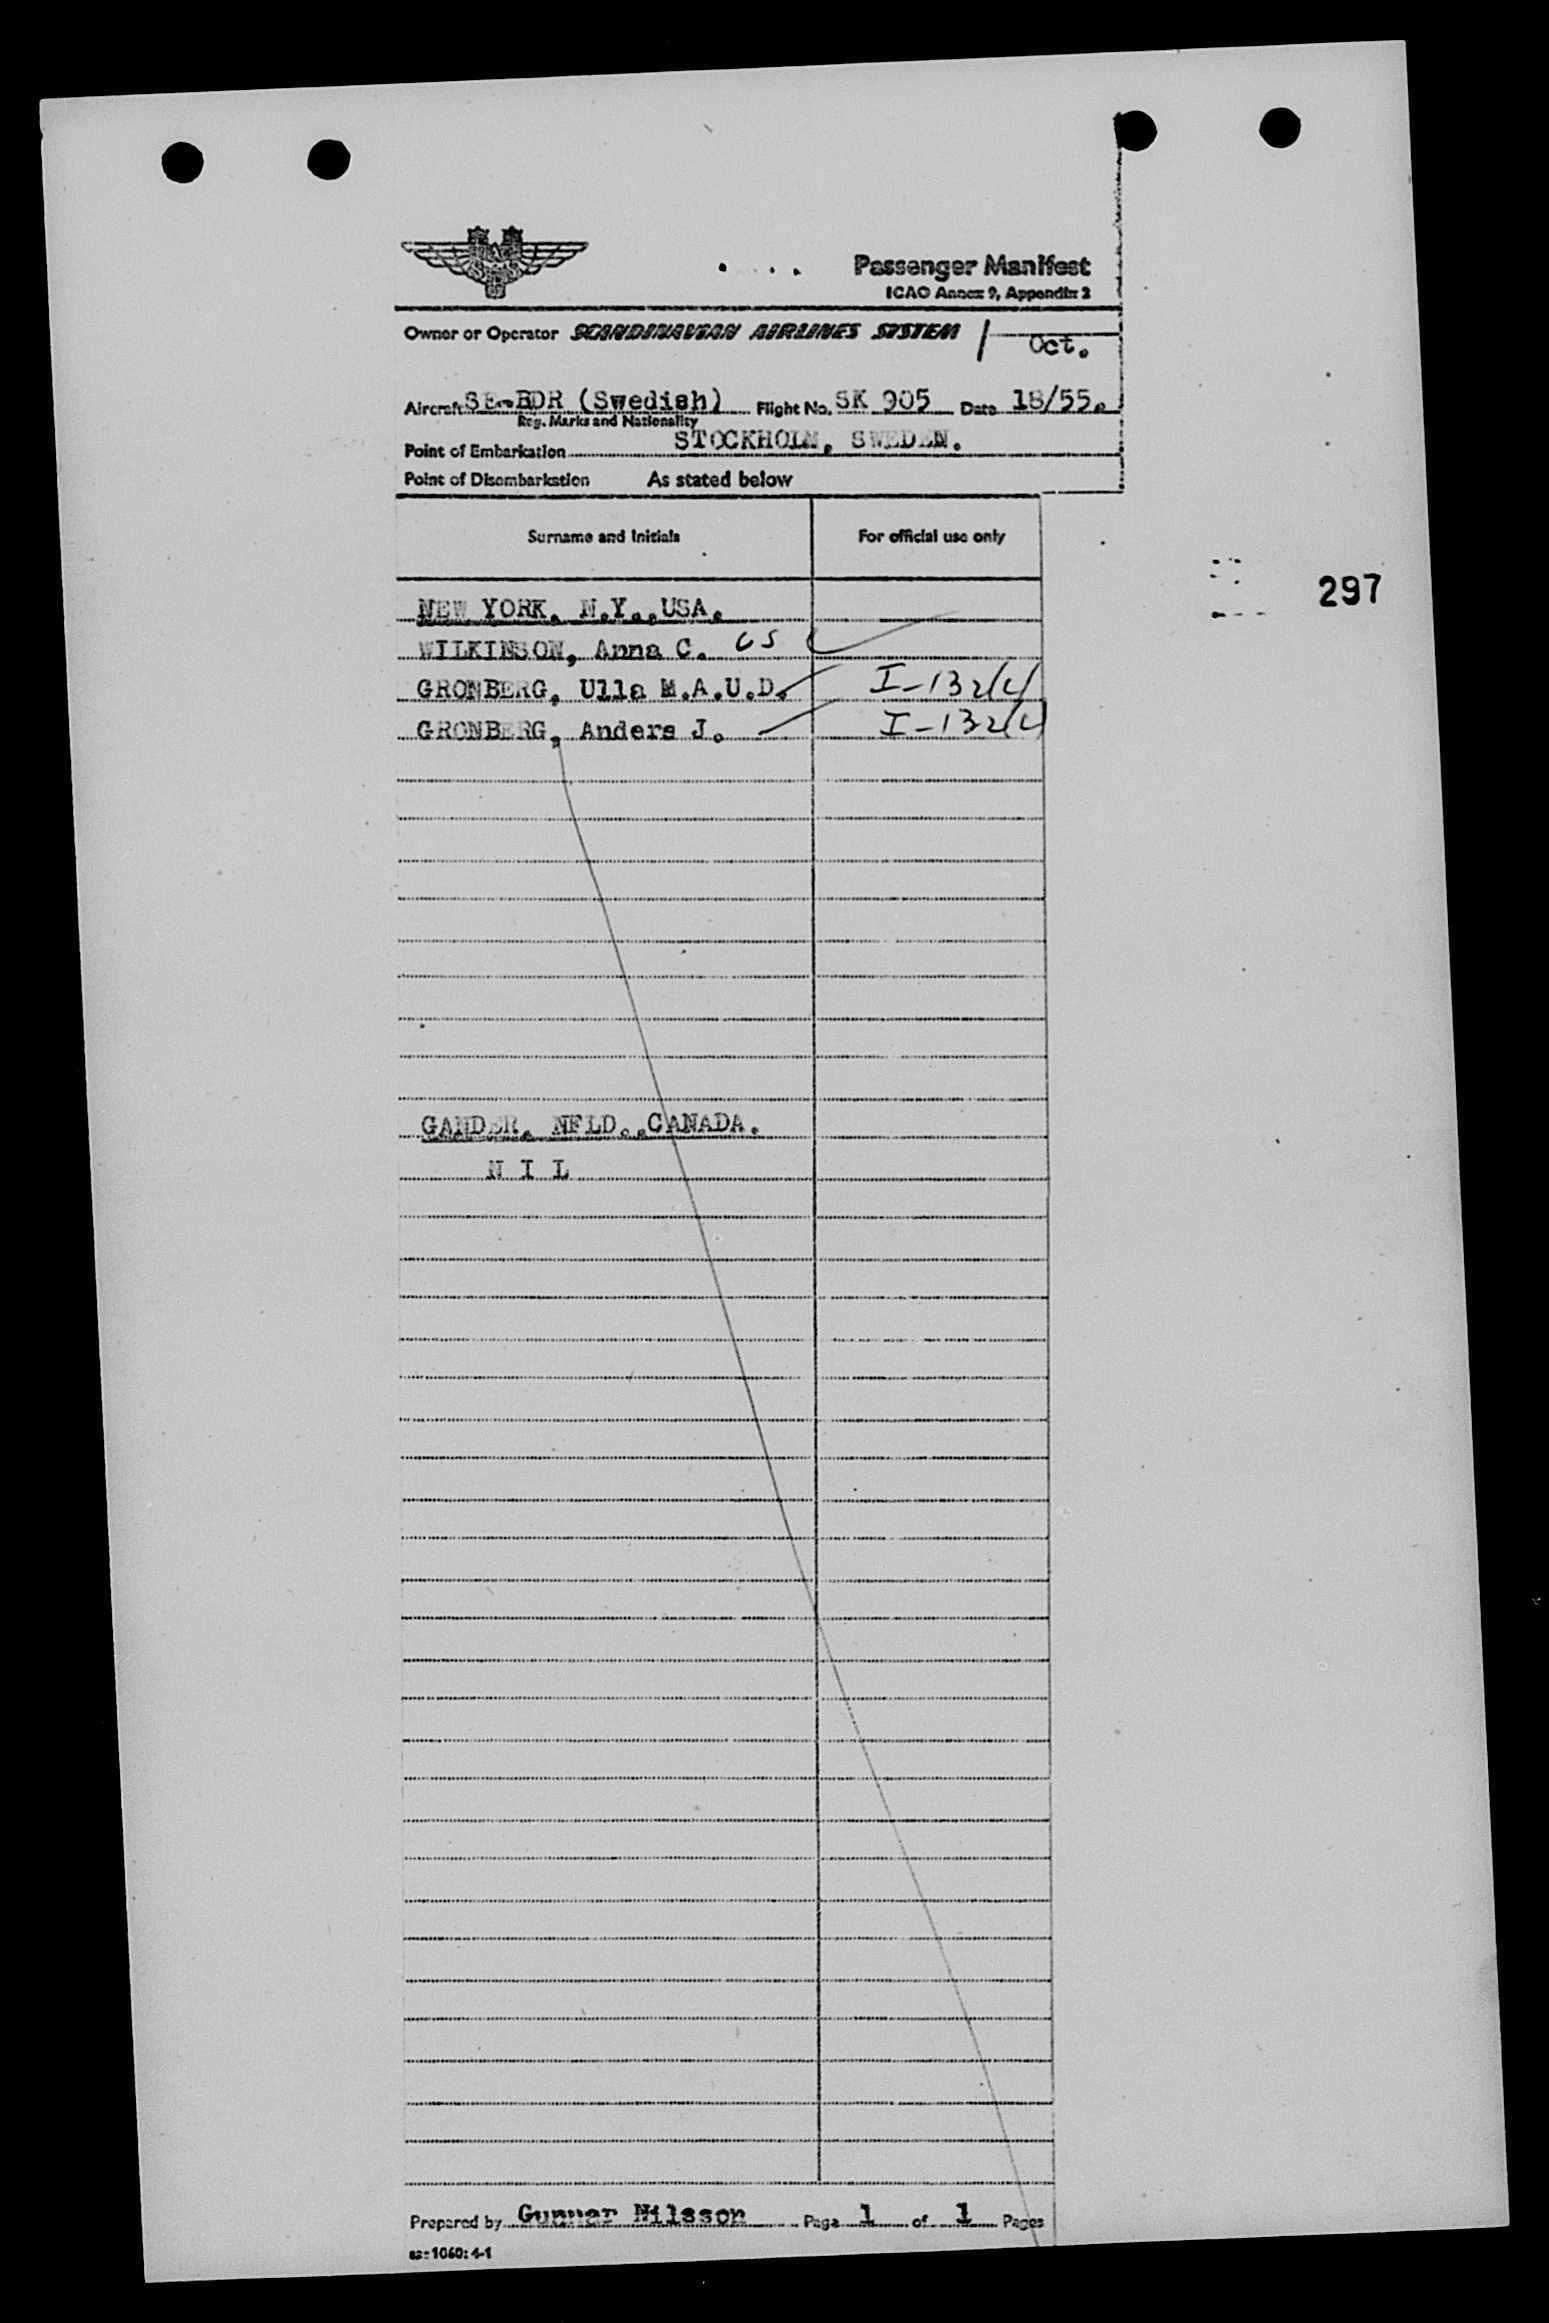 Passenger Manifest
ICAO Annex 9, Appendix 2
Owner or Operator SCANDINAVIAN AIRLINES SYSTEM
Oct.
Aircraft SE-BDR (Swedish) Flight No. SK 905 Date 18/55.
Reg. Marks and Nationality
Point of Embarkation STOCKHOLM, SWEDEN.
Point of Disembarkation As stated below
Surname and Initials For official use only
297
NEW YORK, N.Y.,USA.
WILKINSON, Anna C. US
GRONBERG, Ulla M.A.U.D. I-132(4)
GRONBERG, Anders J. I-132(4)
GANDER, NFLD.,CANADA.
N I L
Prepared by Gunnar Nilsson Page 1 of 1 Pages
1060:4-1